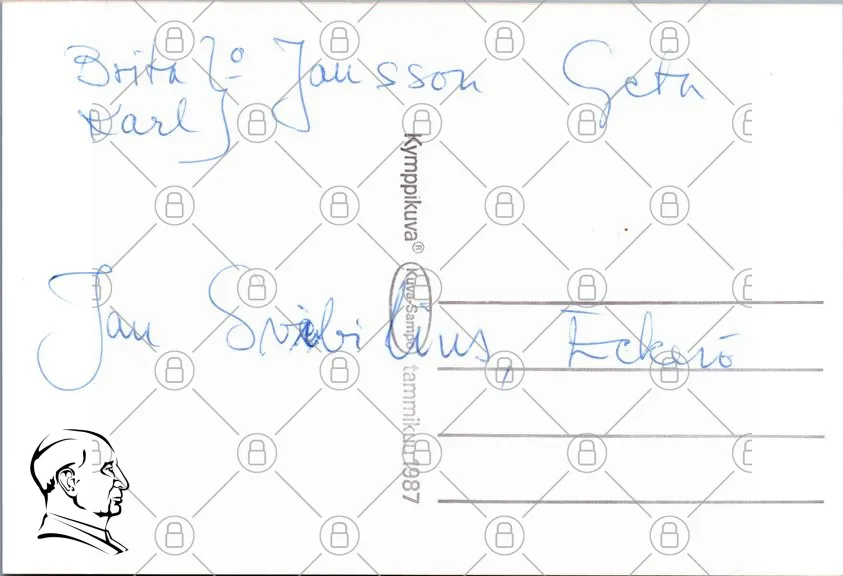 Brita } o Jansson Geta
Karl
Kymppikuva®
Kuva-Sampo
tammikuu 1987
Jan Eckerö